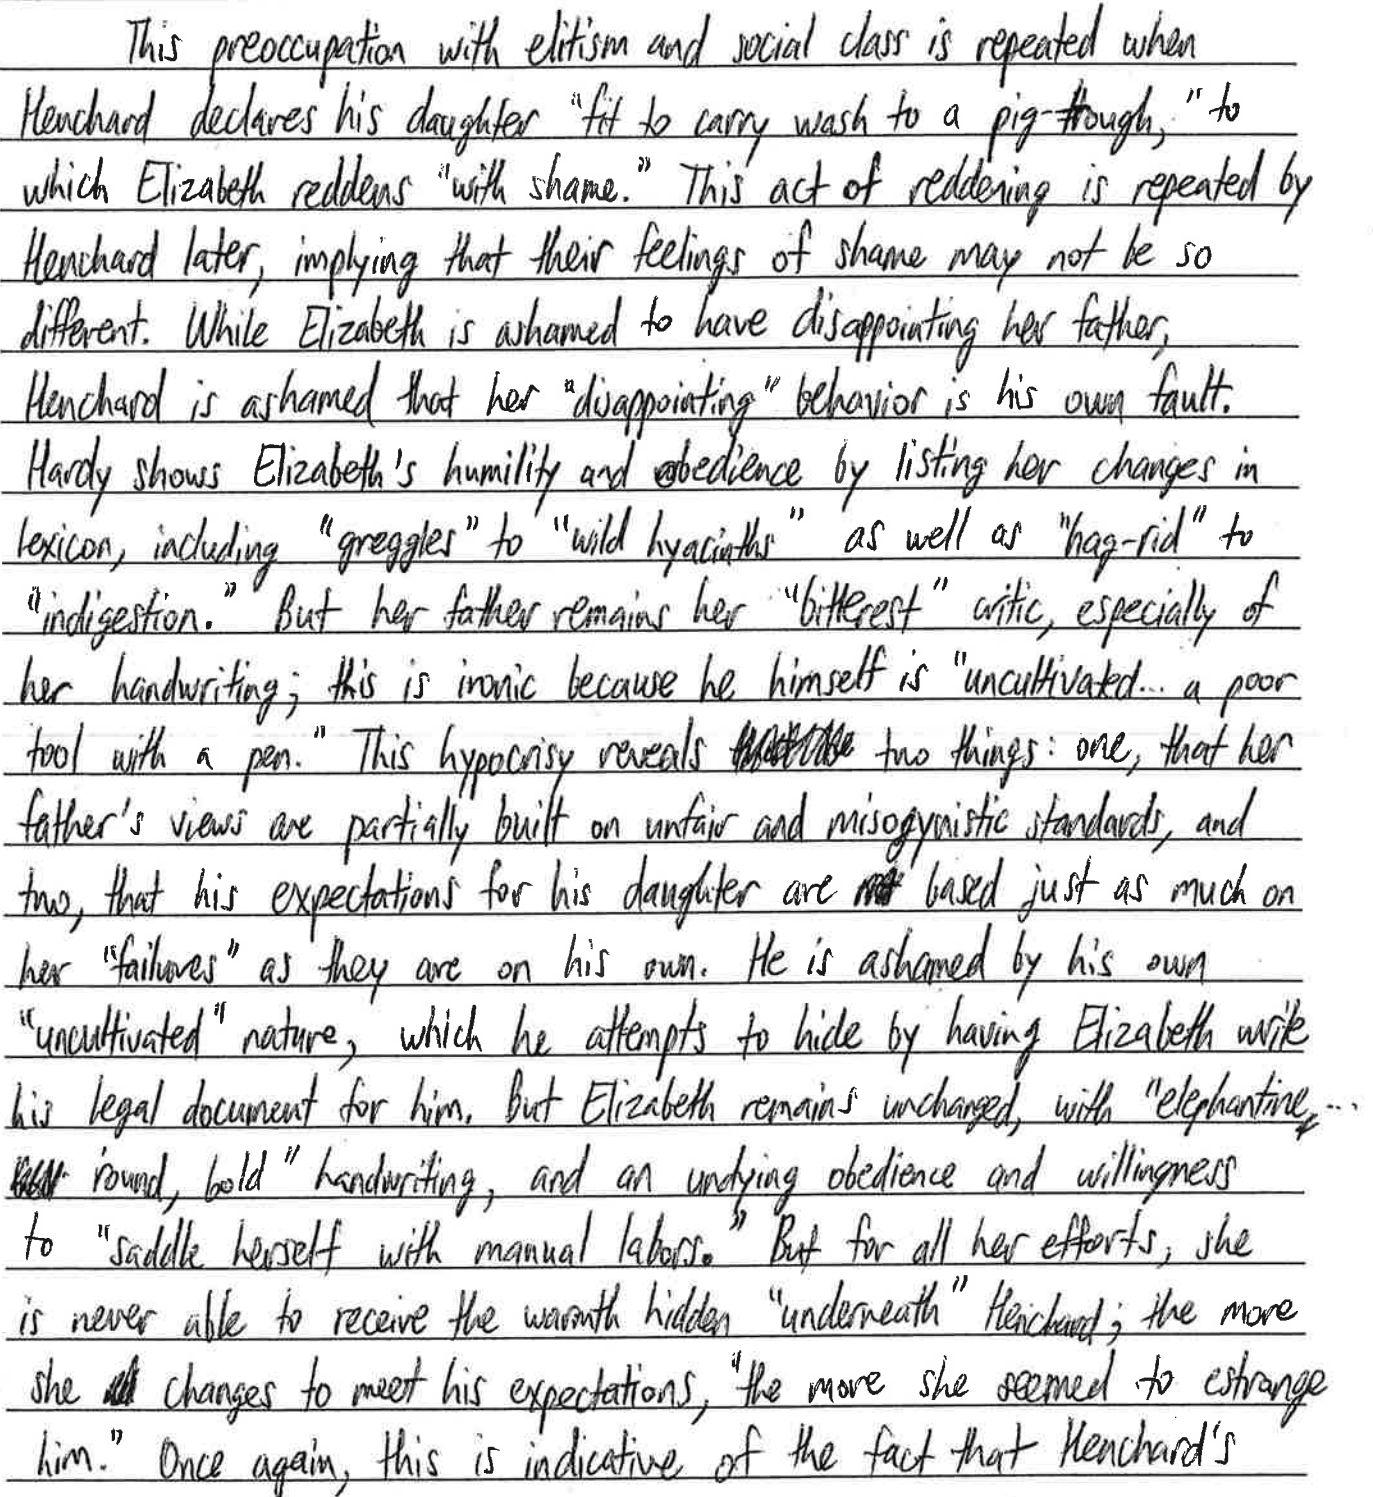 This preoccupation with elitism and social class is repeated when
Henchard declares his daughter "fit to carry wash to a pig-trough," to
which Elizabeth reddens "with shame." This act of reddening is repeated by
Henchard later, implying that their feelings of shame may not be so
different. While Elizabeth is ashamed to have disappointing her father,
Henchard is ashamed that her "disappointing" behavior is his own fault.
Hardy shows Elizabeth's humility and obedience by listing her changes in
lexicon, including "greggles" to "wild hyacinths" as well as "hag-rid" to
"indigestion." But her father remains her "bitterest" critic, especially of
her handwriting; this is ironic because he himself is "uncultivated... a poor
tool with a pen." This hypocrisy reveals two things: one, that her
father's views are partially built on unfair and misogynistic standards, and
two, that his expectations for his daughter are based just as much on
her "failures" as they are on his own. He is ashamed by his own
"uncultivated" nature, which he attempts to hide by having Elizabeth write
his legal document for him. But Elizabeth remains unchanged, with "elephantine,...
round, bold" handwriting, and an undying obedience and willingness
to "saddle herself with manual labors." But for all her efforts, she
is never able to receive the warmth hidden "underneath" Henchard; the more
she changes to meet his expectations, "the more she seemed to estrange
him." Once again, this is indicative of the fact that Henchard's